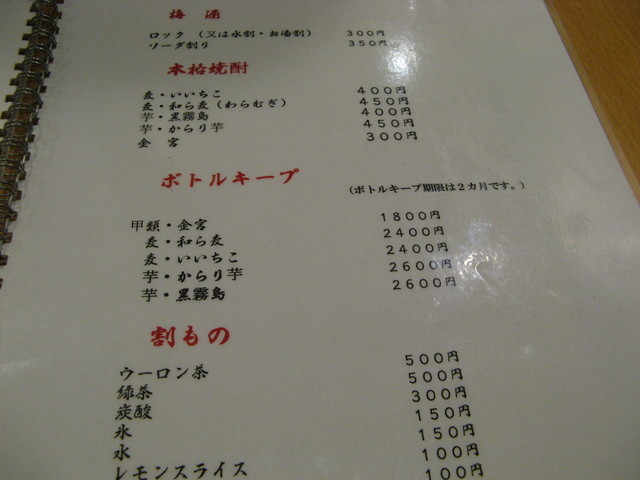 梅酒
ロック (又は水割・お湯割) 300円
ソーダ割り 350円
本格焼酎
麦・いいちこ 400円
麦・和ら麦(わらむぎ) 450円
芋・黒霧島 400円
芋・からり芋 450円
金宮 300円
ボトルキープ (ボトルキープ期限は2カ月です。)
甲類・金宮 1800円
麦・和ら麦 2400円
麦・いいちこ 2400円
芋・からり芋 2600円
芋・黒霧島 2600円
割もの
ウーロン茶 500円
緑茶 500円
炭酸 300円
氷 150円
水 150円
レモンスライス 100円
100円